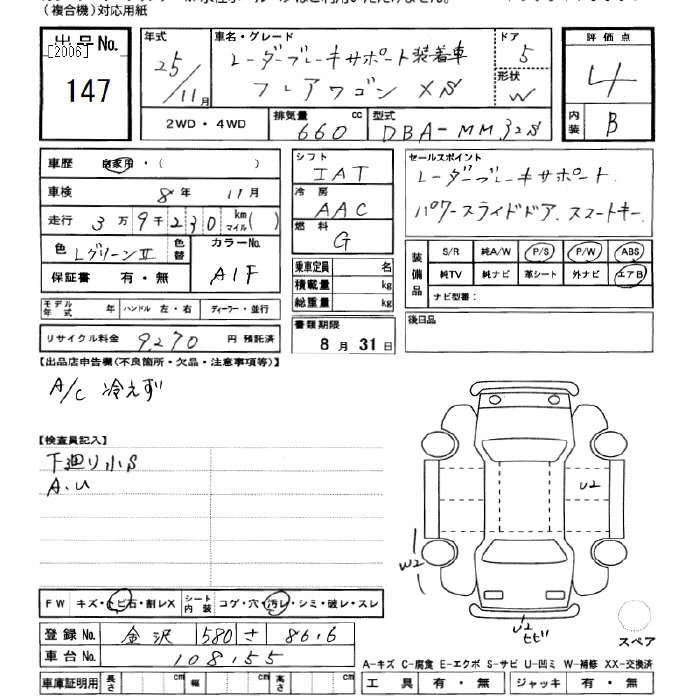 (複合機)対応用紙
出品No.
[2006]
147
年式
25/11月
車名・グレード
レーダーブレーキサポート装着車
フレアワゴン XS
ドア
5
形状
W
評価点
4
内装
B
2WD・4WD
排気量
660
cc
型式
DBA-MM32S
車歴
自家用・( )
車検
8年 11月
走行
3万9千230
km
マイル( )
色
Lグリーン II
色替
カラーNo.
A1F
保証書
有・無
モデル年式
年
ハンドル
左・右
ディーラー・並行
リサイクル料金
9,270
円 預託済
シフト
IAT
冷房
AAC
燃料
G
乗車定員
名
積載量
kg
総重量
kg
書類期限
8月31日
セールスポイント
レーダーブレーキサポート.
パワースライドドア.スマートキー.
装備品
S/R
純A/W
P/S
P/W
ABS
純TV
純ナビ
革シート
外ナビ
エアB
ナビ型番:
後日品
【出品店申告欄(不良箇所・欠品・注意事項等)】
A/C 冷えず
【検査員記入】
下廻り小S
A.U
U2
W2
U2
ヒビ
スペア
FW
キズ・トビ石・割レX
シート内装
コゲ・穴・汚レ・シミ・破レ・スレ
登録No.
金沢
580
さ
86.6
車台No.
108155
A-キズ C-腐食 E-エクボ S-サビ U-凹ミ W-補修 XX-交換済
車庫証明用
長さ
cm
幅
cm
高さ
cm
工具
有・無
ジャッキ
有・無